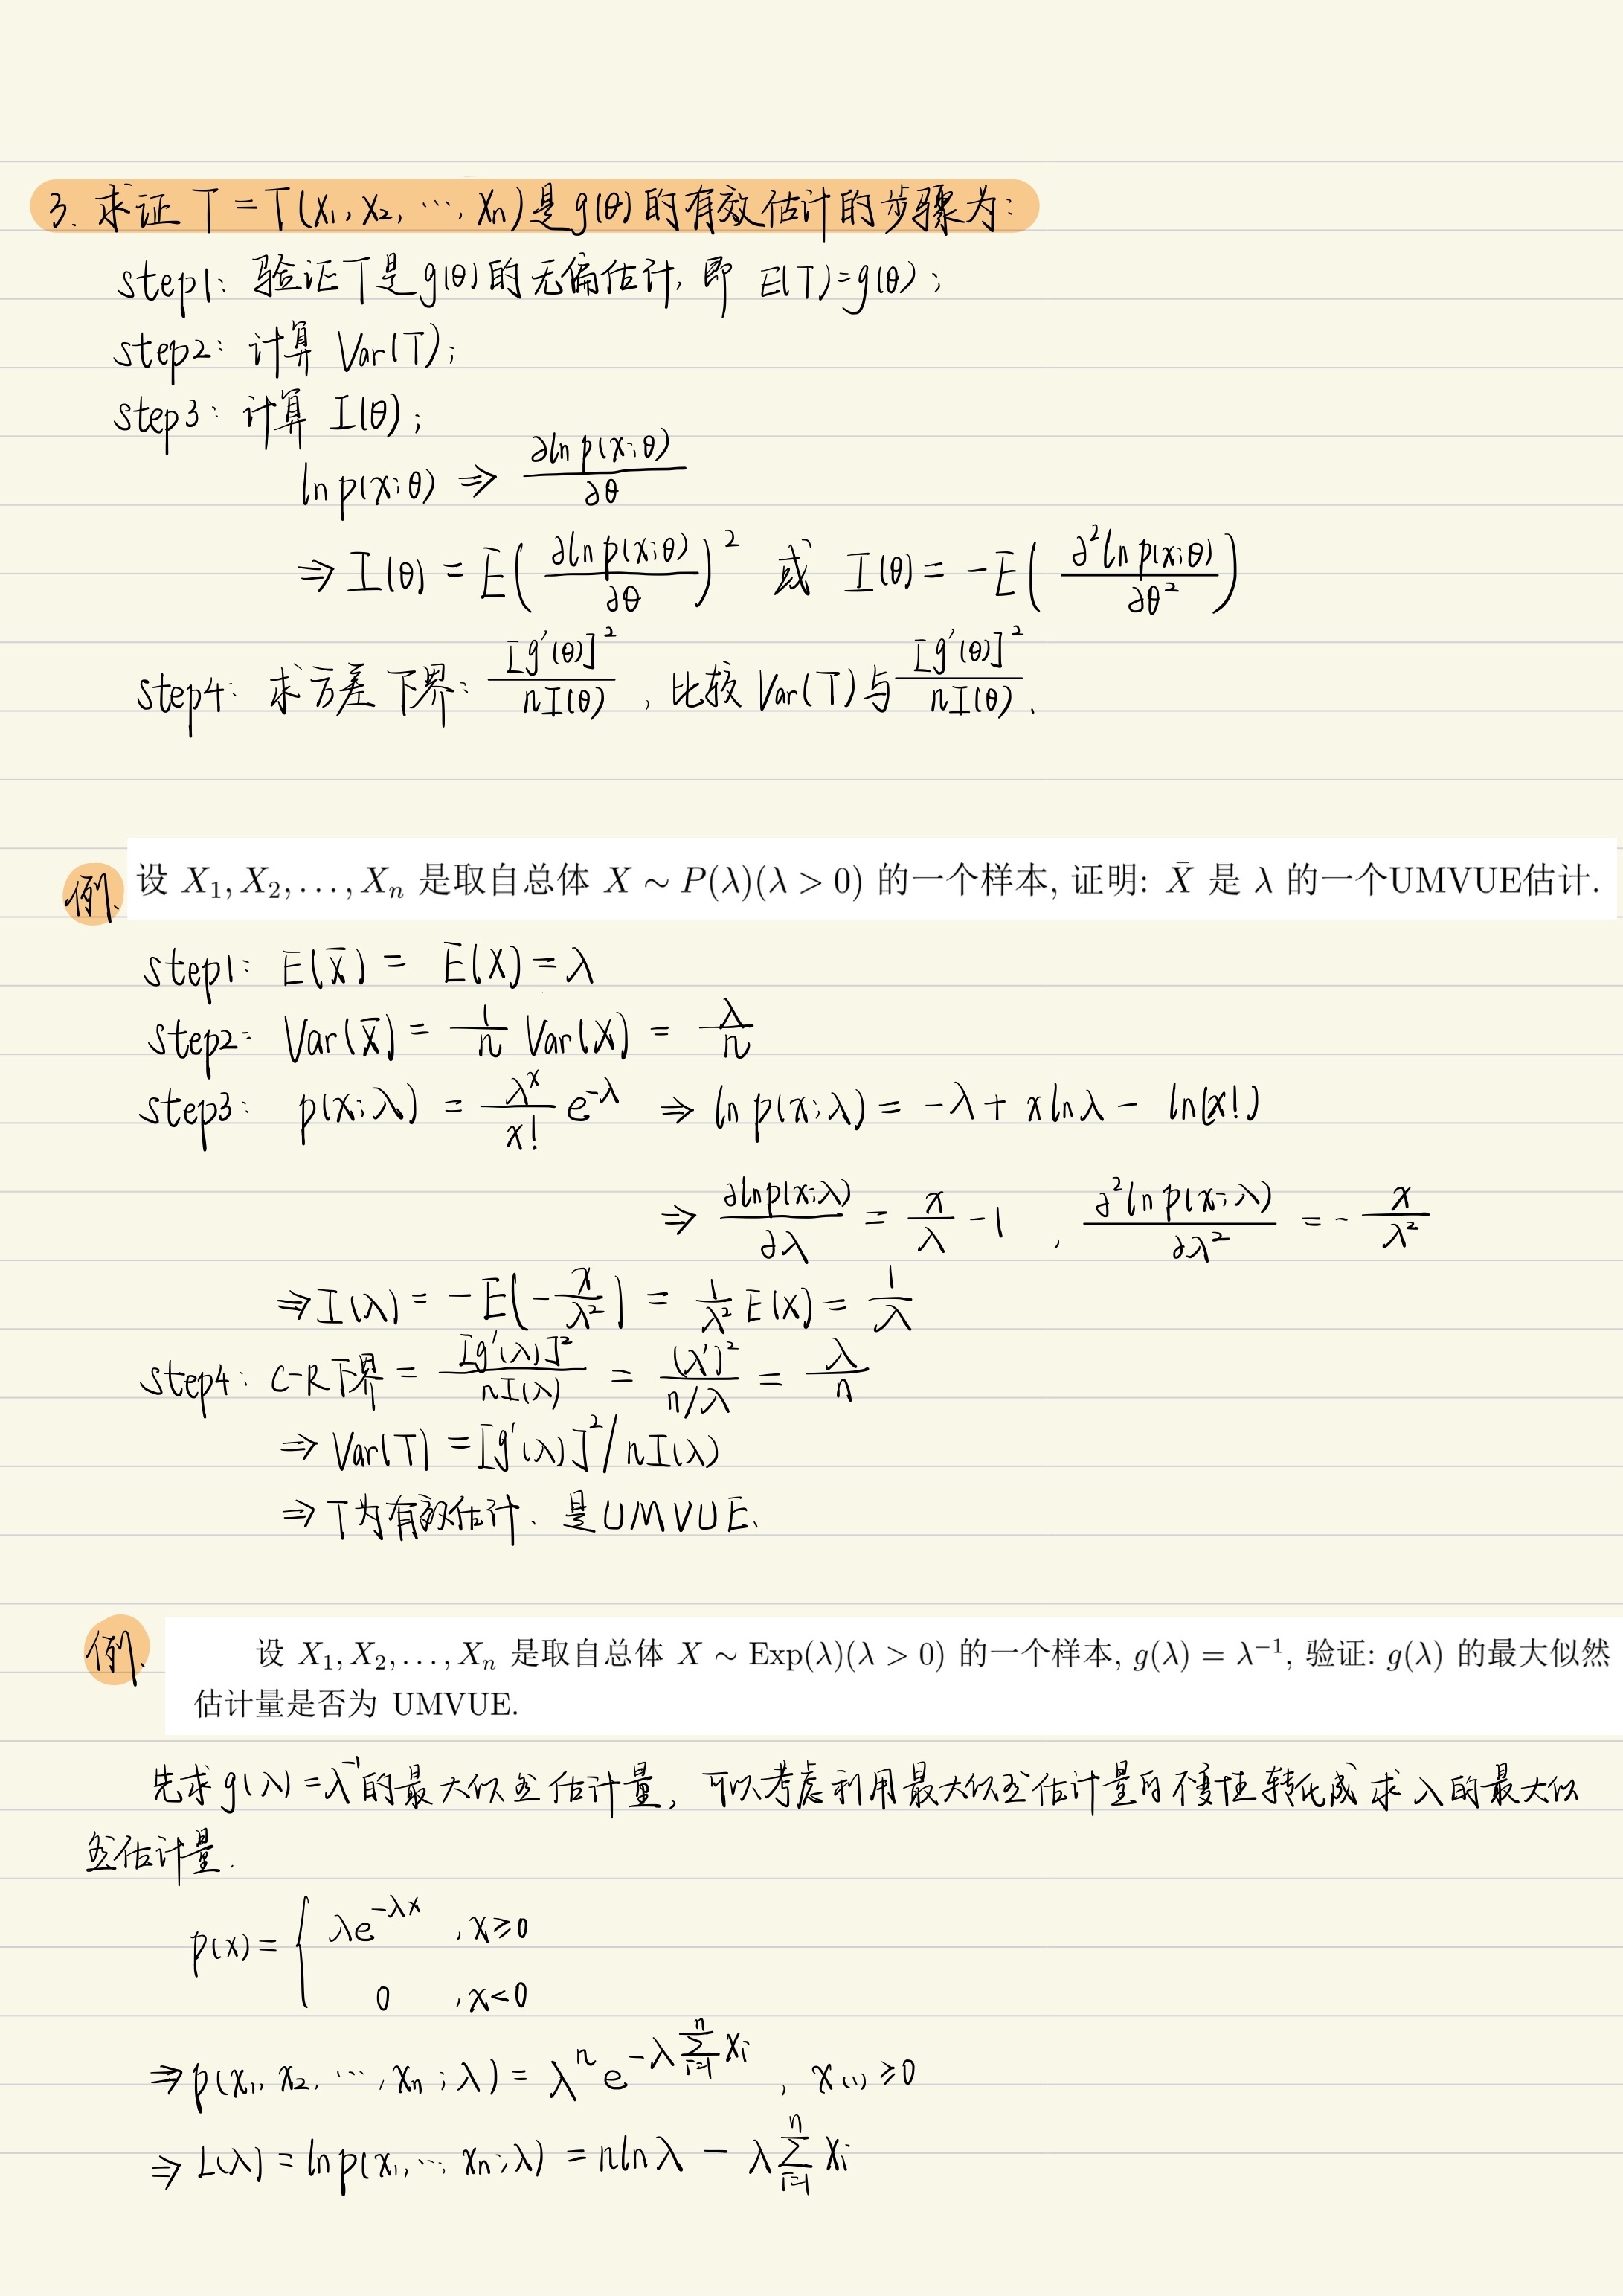 3. 求证 T = T(X₁, X₂, ⋯, Xₙ) 是 g(θ) 的有效估计的步骤为：
step1： 验证 T 是 g(θ) 的无偏估计, 即 E(T) = g(θ)；
step2： 计算 Var(T)；
step3： 计算 I(θ)；
ln p(x;θ) ⇒ ∂ln p(x;θ)/∂θ
⇒ I(θ) = E(∂ln p(x;θ)/∂θ)² 或 I(θ) = -E(∂²ln p(x;θ)/∂θ²)
step4： 求方差下界： [g′(θ)]²/nI(θ) , 比较 Var(T) 与 [g′(θ)]²/nI(θ) .
例. 设 X₁, X₂, . . . , Xₙ 是取自总体 X ∼ P(λ)(λ > 0) 的一个样本, 证明: X̄ 是 λ 的一个UMVUE估计.
step1： E(X̄) = E(X) = λ
step2： Var(X̄) = 1/n Var(X) = λ/n
step3： p(x;λ) = λˣ/x! e^{-λ} ⇒ ln p(x;λ) = -λ + x ln λ - ln(x!)
⇒ ∂ln p(x;λ)/∂λ = x/λ - 1 , ∂²ln p(x;λ)/∂λ² = - x/λ²
⇒ I(λ) = -E(-x/λ²) = 1/λ² E(X) = 1/λ
step4： C-R下界 = [g′(λ)]²/nI(λ) = (λ′)²/n/λ = λ/n
⇒ Var(T) = [g′(λ)]²/nI(λ)
⇒ T为有效估计、是UMVUE.
例. 设 X₁, X₂, . . . , Xₙ 是取自总体 X ∼ Exp(λ)(λ > 0) 的一个样本, g(λ) = λ⁻¹, 验证: g(λ) 的最大似然
估计量是否为 UMVUE.
先求 g(λ) = λ⁻¹ 的最大似然估计量, 可以考虑利用最大似然估计量的不变性转化成求 λ 的最大似
然估计量.
p(x) = { λe^{-λx} , x ≥ 0
0 , x < 0
⇒ p(x₁, x₂, ⋯, xₙ; λ) = λⁿ e^{-λ∑ᵢ₌₁ⁿ xᵢ} , x₍₁₎ ≥ 0
⇒ L(λ) = ln p(x₁, ⋯, xₙ; λ) = n ln λ - λ∑ᵢ₌₁ⁿ xᵢ